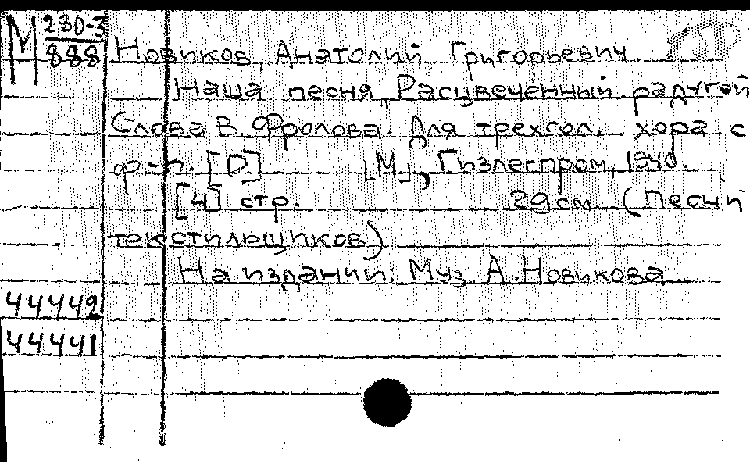 М 230-3
888 Новиков, Анатолий Григорьевич
Наша песня. Расцвеченный радугой
Слова В. Фролова. Для трехгол. хора с
ф-п. [D] [М], Гизлегпром, 1940.
[4] стр. 29 см (Песни
текстильщиков)
На издании: Муз. А. Новикова
44442
44441